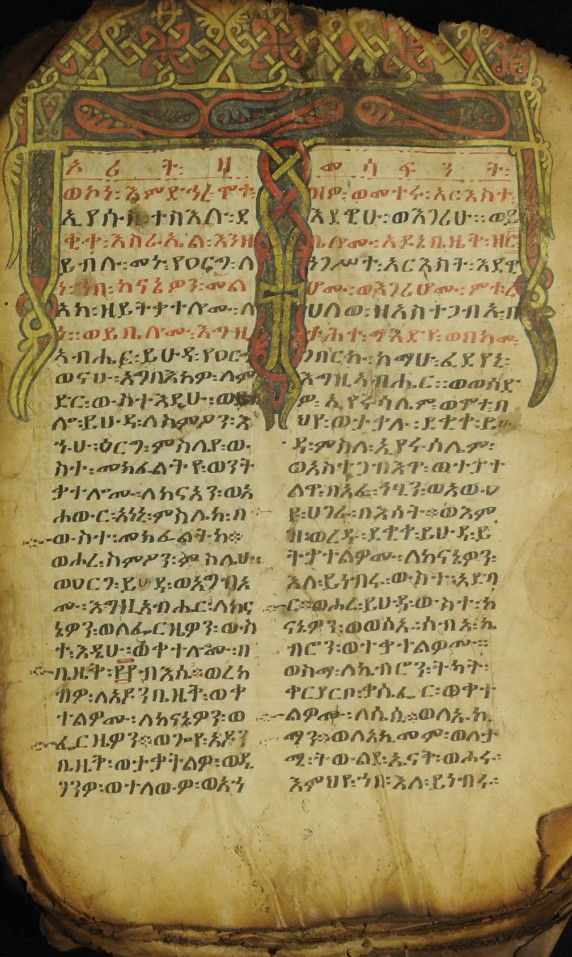 ኦሪት፡ዘመሳፍንት፡
ወኮነ፡እምድኅረ፡ሞተ፡
ኢየሱስ፡ተስእሉ፡ደ
ቂቀ፡እስራኤል፡እንዘ
ይብሉ፡መኑ፡የዐርግ፡ለ
ነ፡ኀበ፡ከናኔዎን፡መል
አከ፡ዘይትቃተሎሙ፡ለ
ነ፡፡ወይቤሎሙ፡እግዚ
አብሔር፡ይሁዳ፡የዐርግ
ወናሁ፡አግባእክዎ፡ለም
ድር፡ውስተ፡እዴሁ፡ወይቤ
ሎ፡ይሁዳ፡ለስምዖን፡እ
ኁሁ፡ዕርግ፡ምስሌየ፡ው
ስተ፡መክፈልትየ፡ወንት
ቃተሎሙ፡ለከናእን፡ወእ
ሐውር፡አነኒ፡ምስሌከ፡በ
ውስተ፡መክፈልትከ፡
ወሖረ፡ስምዖን፡ምስሌሁ፡
ወዐርገ፡ይሁዳ፡ወአግብአ
ሙ፡እግዚአብሔር፡ለከና
ኔዎን፡ወለፌርዜዎን፡ውስ
ተ፡እዴሁ፡ወቀተሎሙ፡በ
ቤዜቅ፡፼፡ብእሴ፡ወረከ
ብዎ፡ለአዶኒቤዜቅ፡ወቀ
ተልዎሙ፡ለከናኔዎን፡ወ
ፌርዜዎን፡ወጐየ፡አዶኒ
ቤዜቅ፡ወተቃትልዎ፡ወዴ
ገንዎ፡ወተለውዎ፡ወአኀ
ዝዎ፡ወመተሩ፡አርእስተ፡
እደዊሁ፡ወእገሪሁ፡፡ወይ
ቤሎሙ፡አዶኒቤዜቅ፡
ነገሥት፡አርእስት፡እደዊ
ሆሙ፡ወእገሪሆሙ፡ምቱራ
ሀለወ፡ዘአስተጋብእ፡በ
ታሕተ፡ማእድየ፡ወበከመ፡
ገበርኩ፡ከማሁ፡ፈደየኒ፡
እግዚአብሔር፡፡ወወሰድ
ዎ፡ኢየሩሳሌም፡ወሞተ፡በ
ህየ፡ወተቃተሉ፡ደቂቀ፡ይሁ
ዳ፡ምስለ፡ኢየሩሳሌም፡
ወአስተጋብእዋ፡ወቀተ
ልዋ፡በአፈ፡ኀፂን፡ወአውዐ
ዩ፡ሀገረ፡በእሳት፡ወእም
ዝ፡ወረዱ፡ደቂቀ፡ይሁዳ፡ይ
ትቃተልዎሙ፡ለከናኔዎን፡
እለ፡ይነብሩ፡ውስተ፡አደባ
ር፡ወሖረ፡ይሁዳ፡ውስተ፡ከ
ናኔዎን፡ወወፅአ፡ሰብአ፡ኬ
ብሮን፡ወተቃተልዎሙ፡፡
ወስማ፡ለኬብሮን፡ትካት፡
ቀርያርቦ፡ቀሴፌር፡ወቀተ
ልዎሙ፡ለሴሲ፡ወለአኪ
ማን፡ወለአከመም፡ወለታ
ሚ፡ትውልደ፡ኤናቅ፡ወሖሩ፡
እምህየ፡ኀበ፡እለ፡ይነብሩ፡